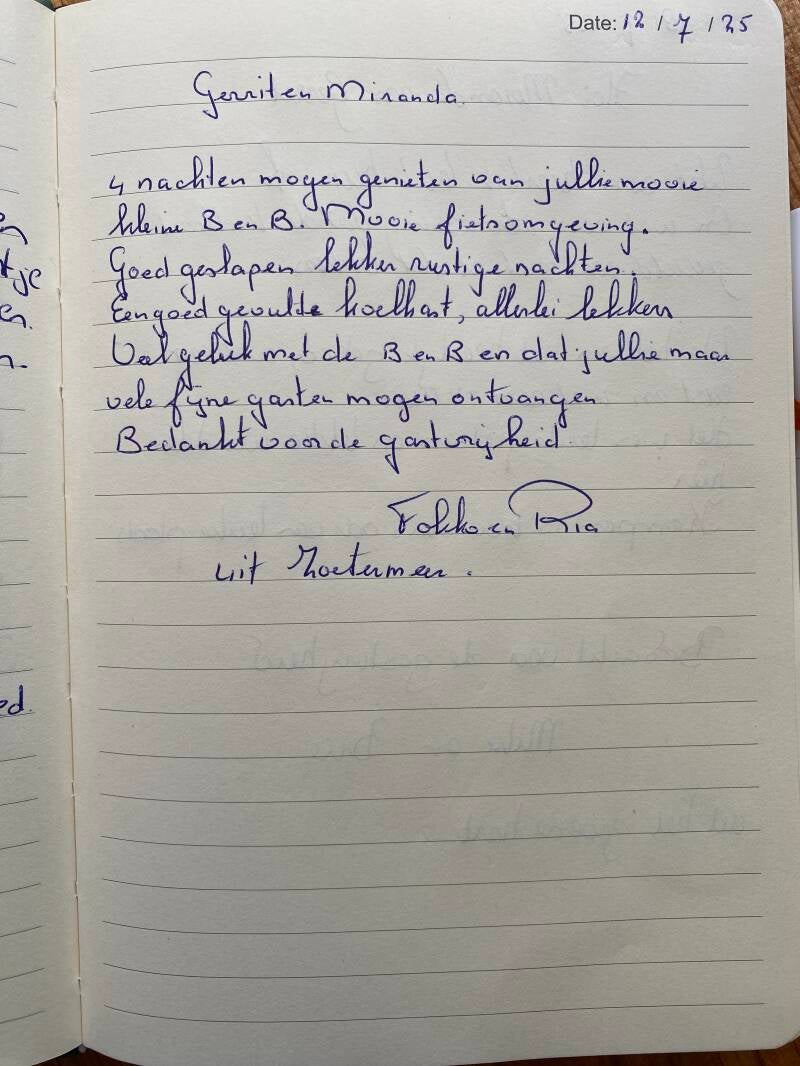 Date: 12 / 7 / 25
Gerrit en Miranda.
4 nachten mogen genieten van jullie mooie
kleine B en B. Mooie fietsomgeving.
Goed geslapen lekker rustige nachten.
Een goed gevulde koelkast, allerlei lekkers
Veel geluk met de B en B en dat jullie maar
vele fijne gasten mogen ontvangen
Bedankt voor de gastvrijheid.
Fokko en Ria
uit Zoetermeer.